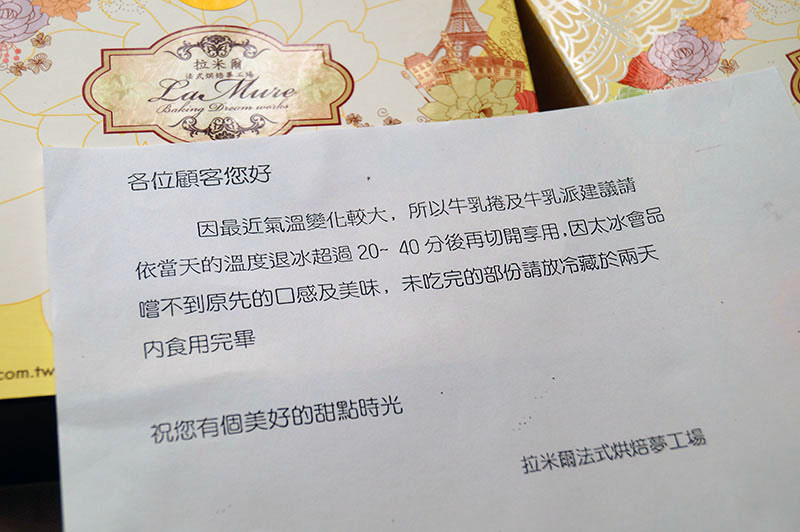 拉米爾
法式烘焙夢工場
La Mure
Baking Dream works
各位顧客您好
因最近氣溫變化較大，所以牛乳捲及牛乳派建議請
依當天的溫度退冰超過20~ 40分後再切開享用,因太冰會品
嚐不到原先的口感及美味，未吃完的部份請放冷藏於兩天
內食用完畢
com.tw
祝您有個美好的甜點時光
拉米爾法式烘焙夢工場